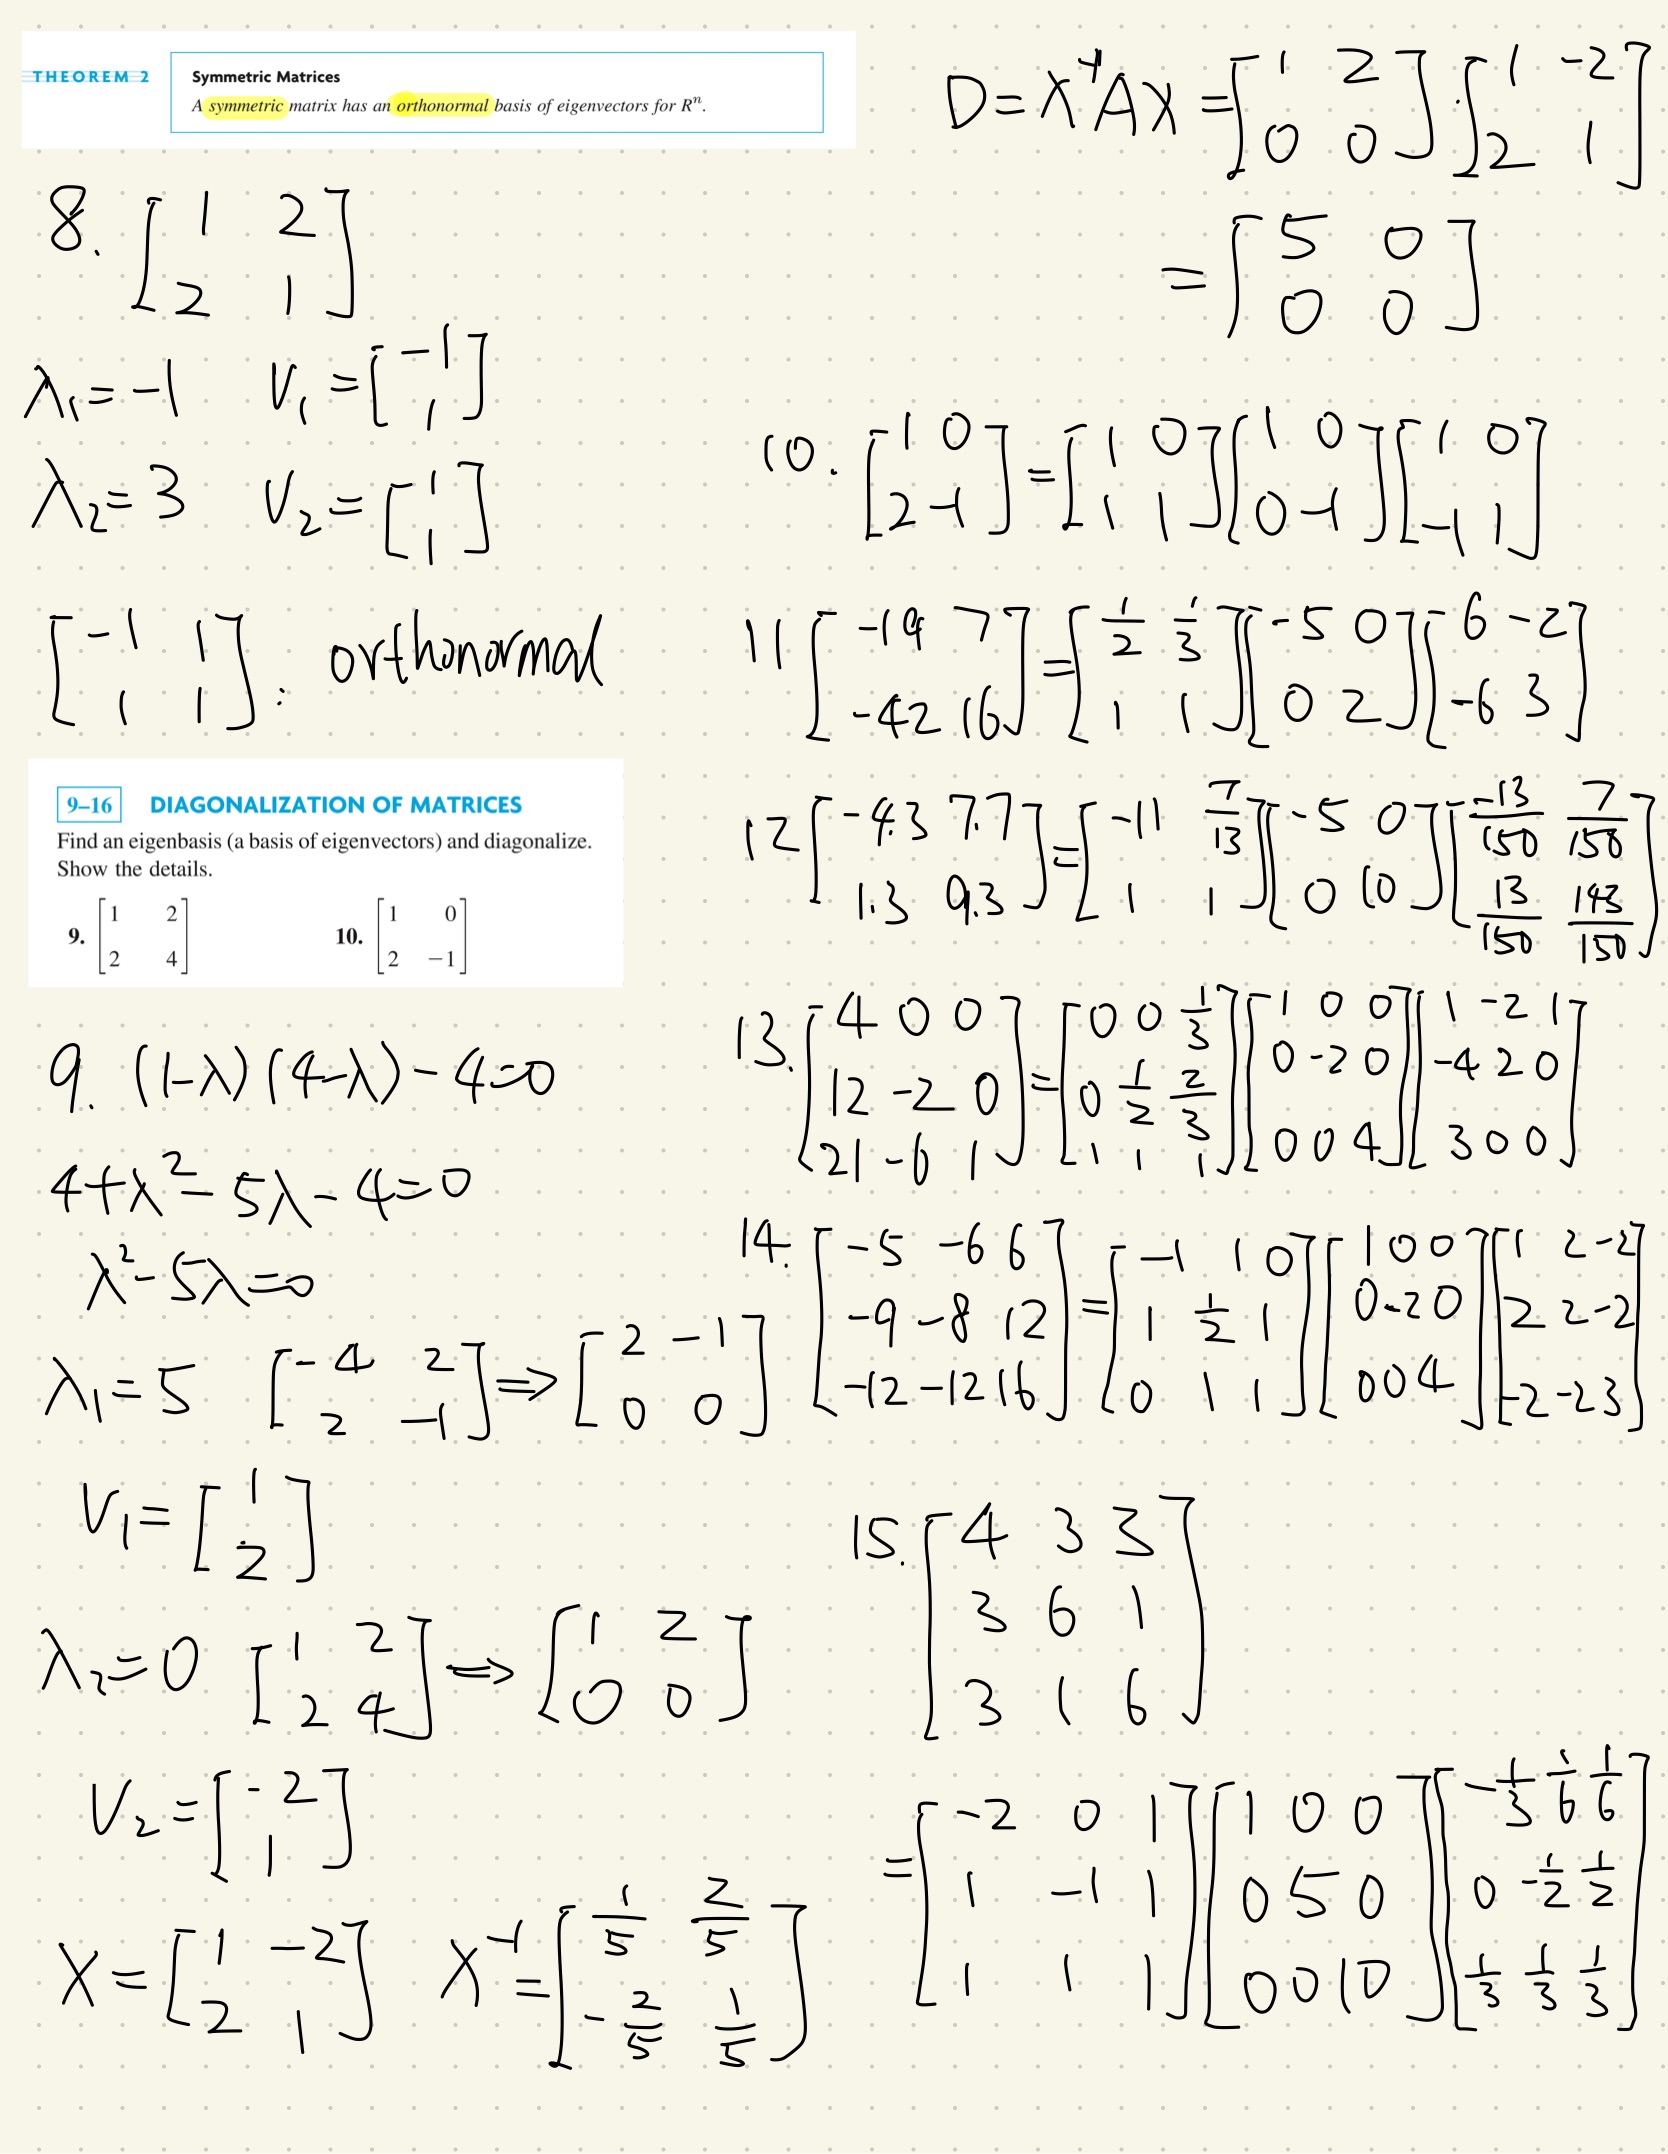 THEOREM 2
Symmetric Matrices
A symmetric matrix has an orthonormal basis of eigenvectors for Rⁿ.
8. [1 2
2 1]
λ₁ = -1 v₁ = [-1
1]
λ₂ = 3 v₂ = [1
1]
[-1 1
1 1] : orthonormal
9–16 DIAGONALIZATION OF MATRICES
Find an eigenbasis (a basis of eigenvectors) and diagonalize.
Show the details.
9. [1 2
2 4]
10. [1 0
2 −1]
9. (1-λ)(4-λ)-4=0
4+λ²-5λ-4=0
λ²-5λ=0
λ₁=5 [-4 2
2 -1] ⇒ [2 -1
0 0]
v₁= [1
2]
λ₂=0 [1 2
2 4] ⇒ [1 2
0 0]
v₂= [-2
1]
X= [1 -2
2 1] X⁻¹= [1/5 2/5
-2/5 1/5]
D=X⁻¹AX= [1 2
0 0] · [1 -2
2 1]
= [5 0
0 0]
10. [1 0
2 -1] = [1 0
1 1] [1 0
0 -1] [1 0
-1 1]
11 [-19 7
-42 16] = [1/2 1/3
1 1] [-5 0
0 2] [6 -2
-6 3]
12 [-4.3 7.7
1.3 9.3] = [-11 7/13
1 1] [-5 0
0 10] [-13/150 7/150
13/150 143/150]
13. [4 0 0
12 -2 0
21 -6 1] = [0 0 1/3
0 1/2 2/3
1 1 1] [1 0 0
0 -2 0
0 0 4] [1 -2 1
-4 2 0
3 0 0]
14. [-5 -6 6
-9 -8 12
-12 -12 16] = [-1 1 0
1 1/2 1
0 1 1] [1 0 0
0 -2 0
0 0 4] [1 2 -2
2 2 -2
-2 -2 3]
15. [4 3 3
3 6 1
3 1 6]
= [-2 0 1
1 -1 1
1 1 1] [1 0 0
0 5 0
0 0 10] [-1/3 1/6 1/6
0 -1/2 1/2
1/3 1/3 1/3]